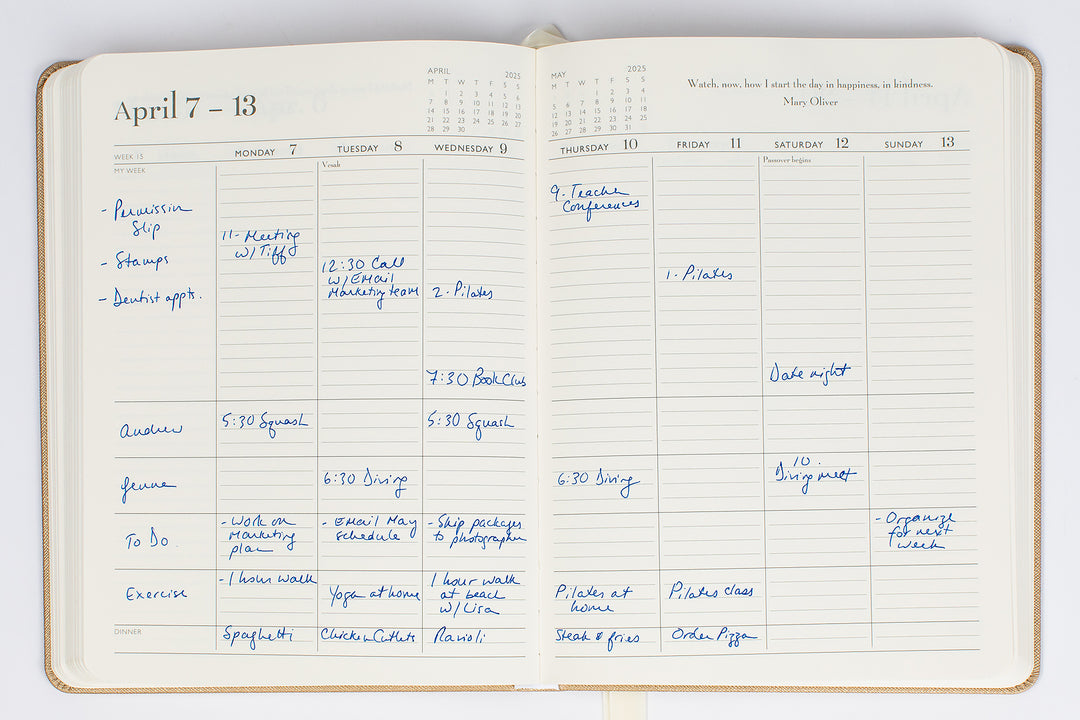 April 7 – 13
APRIL 2025
M T W T F S S
1 2 3 4 5 6
7 8 9 10 11 12 13
14 15 16 17 18 19 20
21 22 23 24 25 26 27
28 29 30
MAY 2025
M T W T F S S
1 2 3 4
5 6 7 8 9 10 11
12 13 14 15 16 17 18
19 20 21 22 23 24 25
26 27 28 29 30 31
Watch, now, how I start the day in happiness, in kindness.
Mary Oliver
WEEK 15
MONDAY 7
TUESDAY 8
WEDNESDAY 9
THURSDAY 10
FRIDAY 11
SATURDAY 12
SUNDAY 13
MY WEEK
- Permission
Slip
- Stamps
- Dentist appts.
11- Meeting
w/ Tiff
Vesak
12:30 Call
w/ EMail
Marketing team
2. Pilates
7:30 Book Club
9. Teacher
Conferences
1. Pilates
Passover begins
Date night
Andrew
5:30 Squash
5:30 Squash
Jenna
6:30 Diving
6:30 Diving
10.
Diving meet
To Do
- Work on
Marketing
plan
- EMail May
schedule
- Ship packages
to photographer
- Organize
for next
week
Exercise
- 1 hour walk
Yoga at home
1 hour walk
at beach
w/ Lisa
Pilates at
home
Pilates class
DINNER
Spaghetti
Chicken Cutlets
Ravioli
Steak & fries
Order Pizza